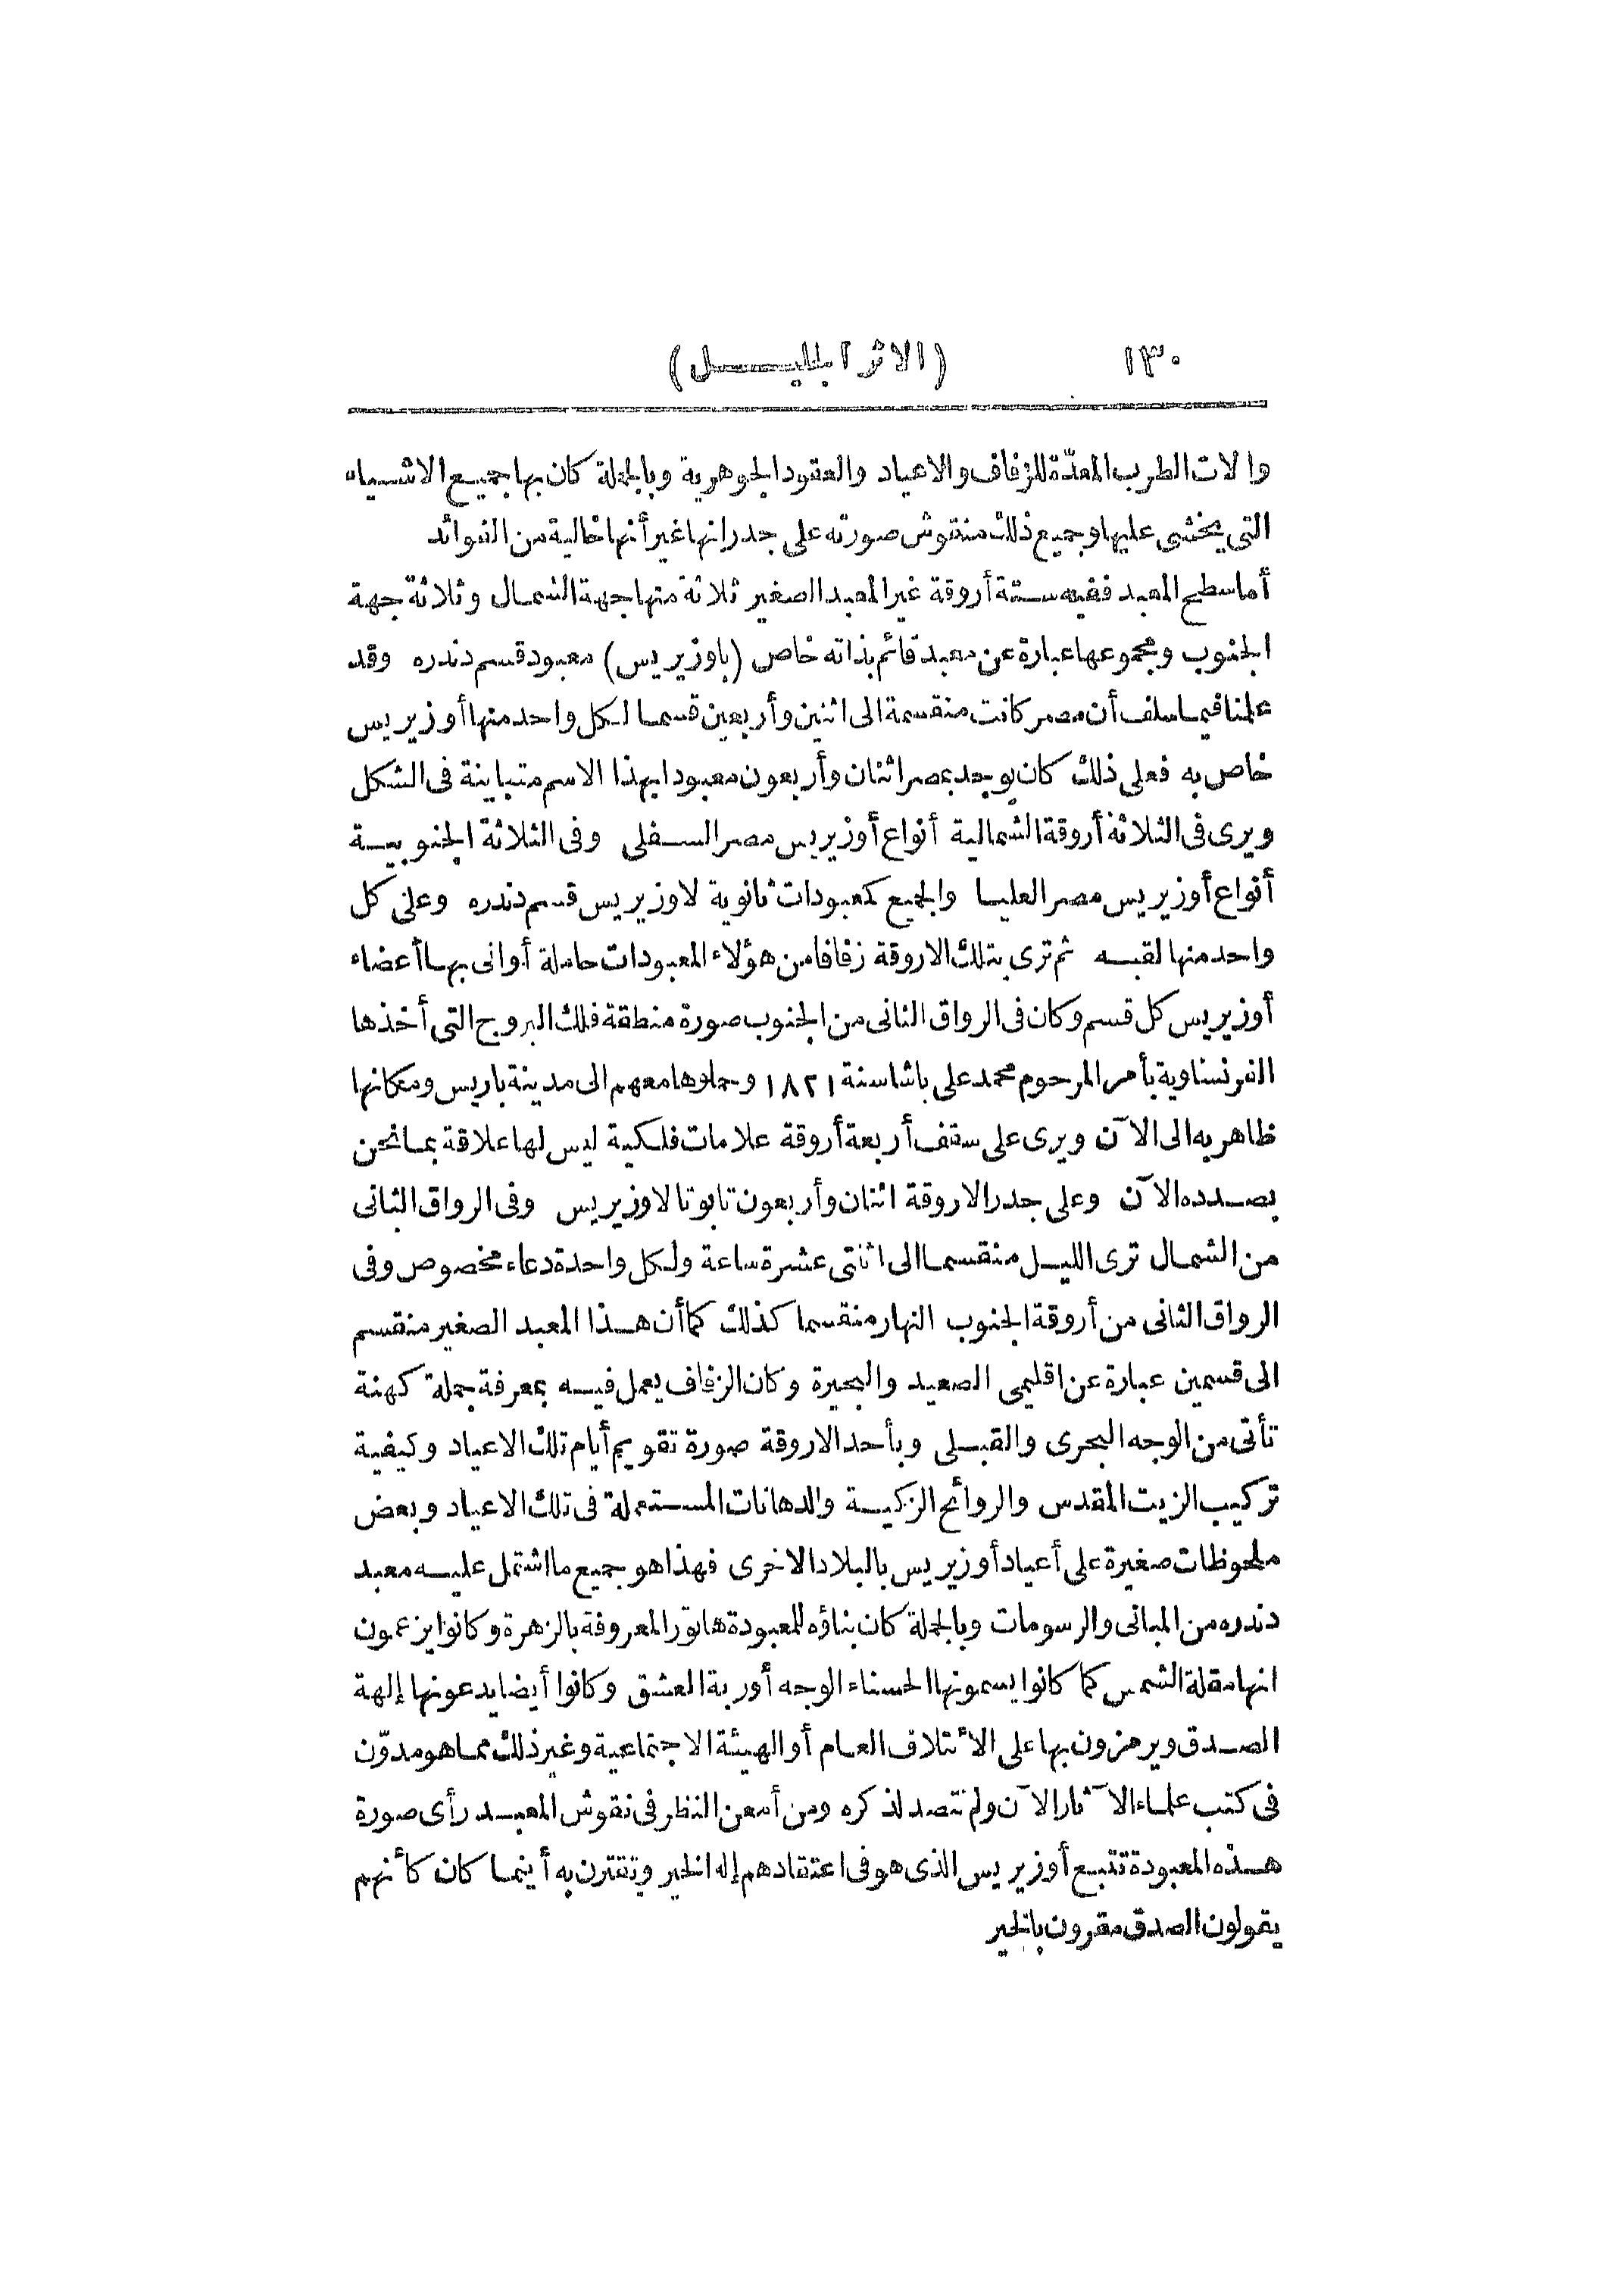 ١٣٠ (الاثر الجليل)
والات الطرب المعدّة للزفاف والاعياد والعقود الجوهرية وبالجملة كان بها جميع الاشياء
التي يخشى عليها وجميع ذلك منقوش صورته على جدرانها غير أنها خالية من الفوائد
أما سطح المعبد ففيه ستة أروقة غير المعبد الصغير ثلاثة منها جهة الشمال وثلاثة جهة
الجنوب ومجموعها عبارة عن معبد قائم بذاته خاص (باوزيريس) معبود قسم دندره وقد
علمنا فيما سلف أن مصر كانت منقسمة الى اثنين وأربعين قسما لكل واحد منها أوزيريس
خاص به فعلى ذلك كان يوجد بمصر اثنان وأربعون معبودا بهذا الاسم متباينة فى الشكل
ويرى فى الثلاثة أروقة الشمالية أنواع أوزيريس مصر السفلى وفى الثلاثة الجنوبية
أنواع أوزيريس مصر العليا والجميع كمعبودات ثانوية لاوزيريس قسم دندره وعلى كل
واحد منها لقبه ثم ترى بتلك الاروقة زفافا من هؤلاء المعبودات حاملة أوانى بها أعضاء
أوزيريس كل قسم وكان فى الرواق الثانى من الجنوب صورة منطقة فلك البروج التى أخذها
الفرنساوية بأمر المرحوم محمد على باشا سنة ١٨٢١ وحملوها معهم الى مدينة باريس ومكانها
ظاهر به الى الآن ويرى على سقف أربعة أروقة علامات فلكية ليس لها علاقة بما نحن
بصدده الآن وعلى جدر الاروقة اثنان وأربعون تابوتا لاوزيريس وفى الرواق الثانى
من الشمال ترى الليل منقسما الى اثنتى عشرة ساعة ولكل واحدة دعاء مخصوص وفى
الرواق الثانى من أروقة الجنوب النهار منقسما كذلك كما أن هذا المعبد الصغير منقسم
الى قسمين عبارة عن اقليمى الصعيد والبحيرة وكان الزفاف يعمل فيه بمعرفة جملة كهنة
تأتى من الوجه البحرى والقبلى وبأحد الاروقة صورة تقويم أيام تلك الاعياد وكيفية
تركيب الزيت المقدس والروائح الزكية والدهانات المستعملة فى تلك الاعياد وبعض
ملحوظات صغيرة على أعياد أوزيريس بالبلاد الاخرى فهذا هو جميع ما اشتمل عليه معبد
دندره من المبانى والرسومات وبالجملة كان بناؤه للمعبودة هاتور المعروفة بالزهرة وكانوا يزعمون
انها مقلة الشمس كما كانوا يسمونها الحسناء الوجه أو ربة العشق وكانوا أيضا يدعونها إلهة
الصدق ويرمزون بها على الأئتلاف العام أو الهيئة الاجتماعية وغير ذلك مما هو مدوّن
فى كتب علماء الآثار الآن ولم نتصد لذكره ومن أمعن النظر فى نقوش المعبد رأى صورة
هذه المعبودة تتبع أوزيريس الذى هو فى اعتقادهم إله الخير وتقترن به أينما كان كأنهم
يقولون الصدق مقرون بالخير